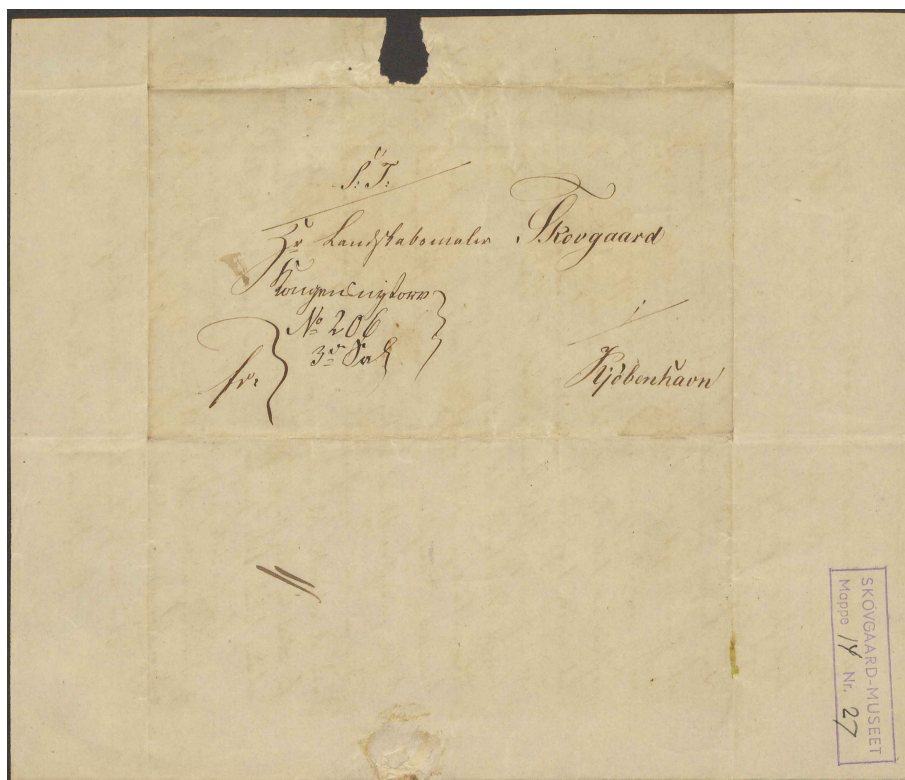 S: T:
Hr Landskabsmaler Skovgaard
Kongensnytorv
No 206
3die Sal
fr:
i
Kjöbenhavn
SKOVGAARD-MUSEET
Mappe 14 Nr. 27